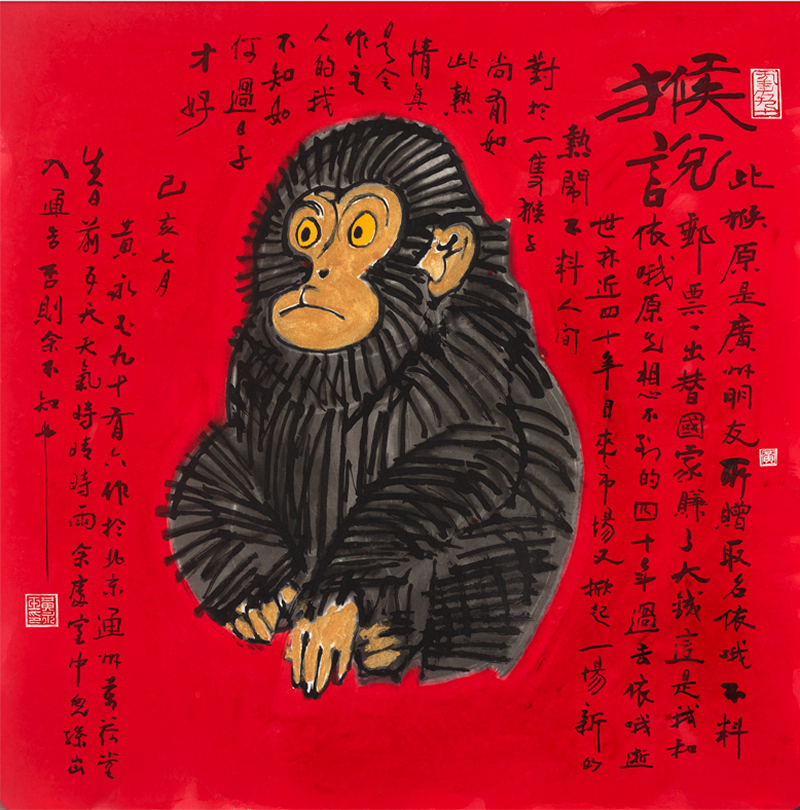 猴說
此猴原是廣州朋友所贈取名依哦不料
郵票一出替國家賺了大錢這是我和
依哦原先想不到的四十年過去依哦逝
世亦近四十年目來市場又掀起一場新的
熱鬧不料人間
對於一隻猴子
尚有如
此熱
情真
是令
作主
人的我
不知如
何過日子
才好
己亥七月
黃永玉九十有六作於北京通州萬荷堂
生日前多天天氣時晴時雨余處室中
入通告否則余不知也
黃
黃永玉印